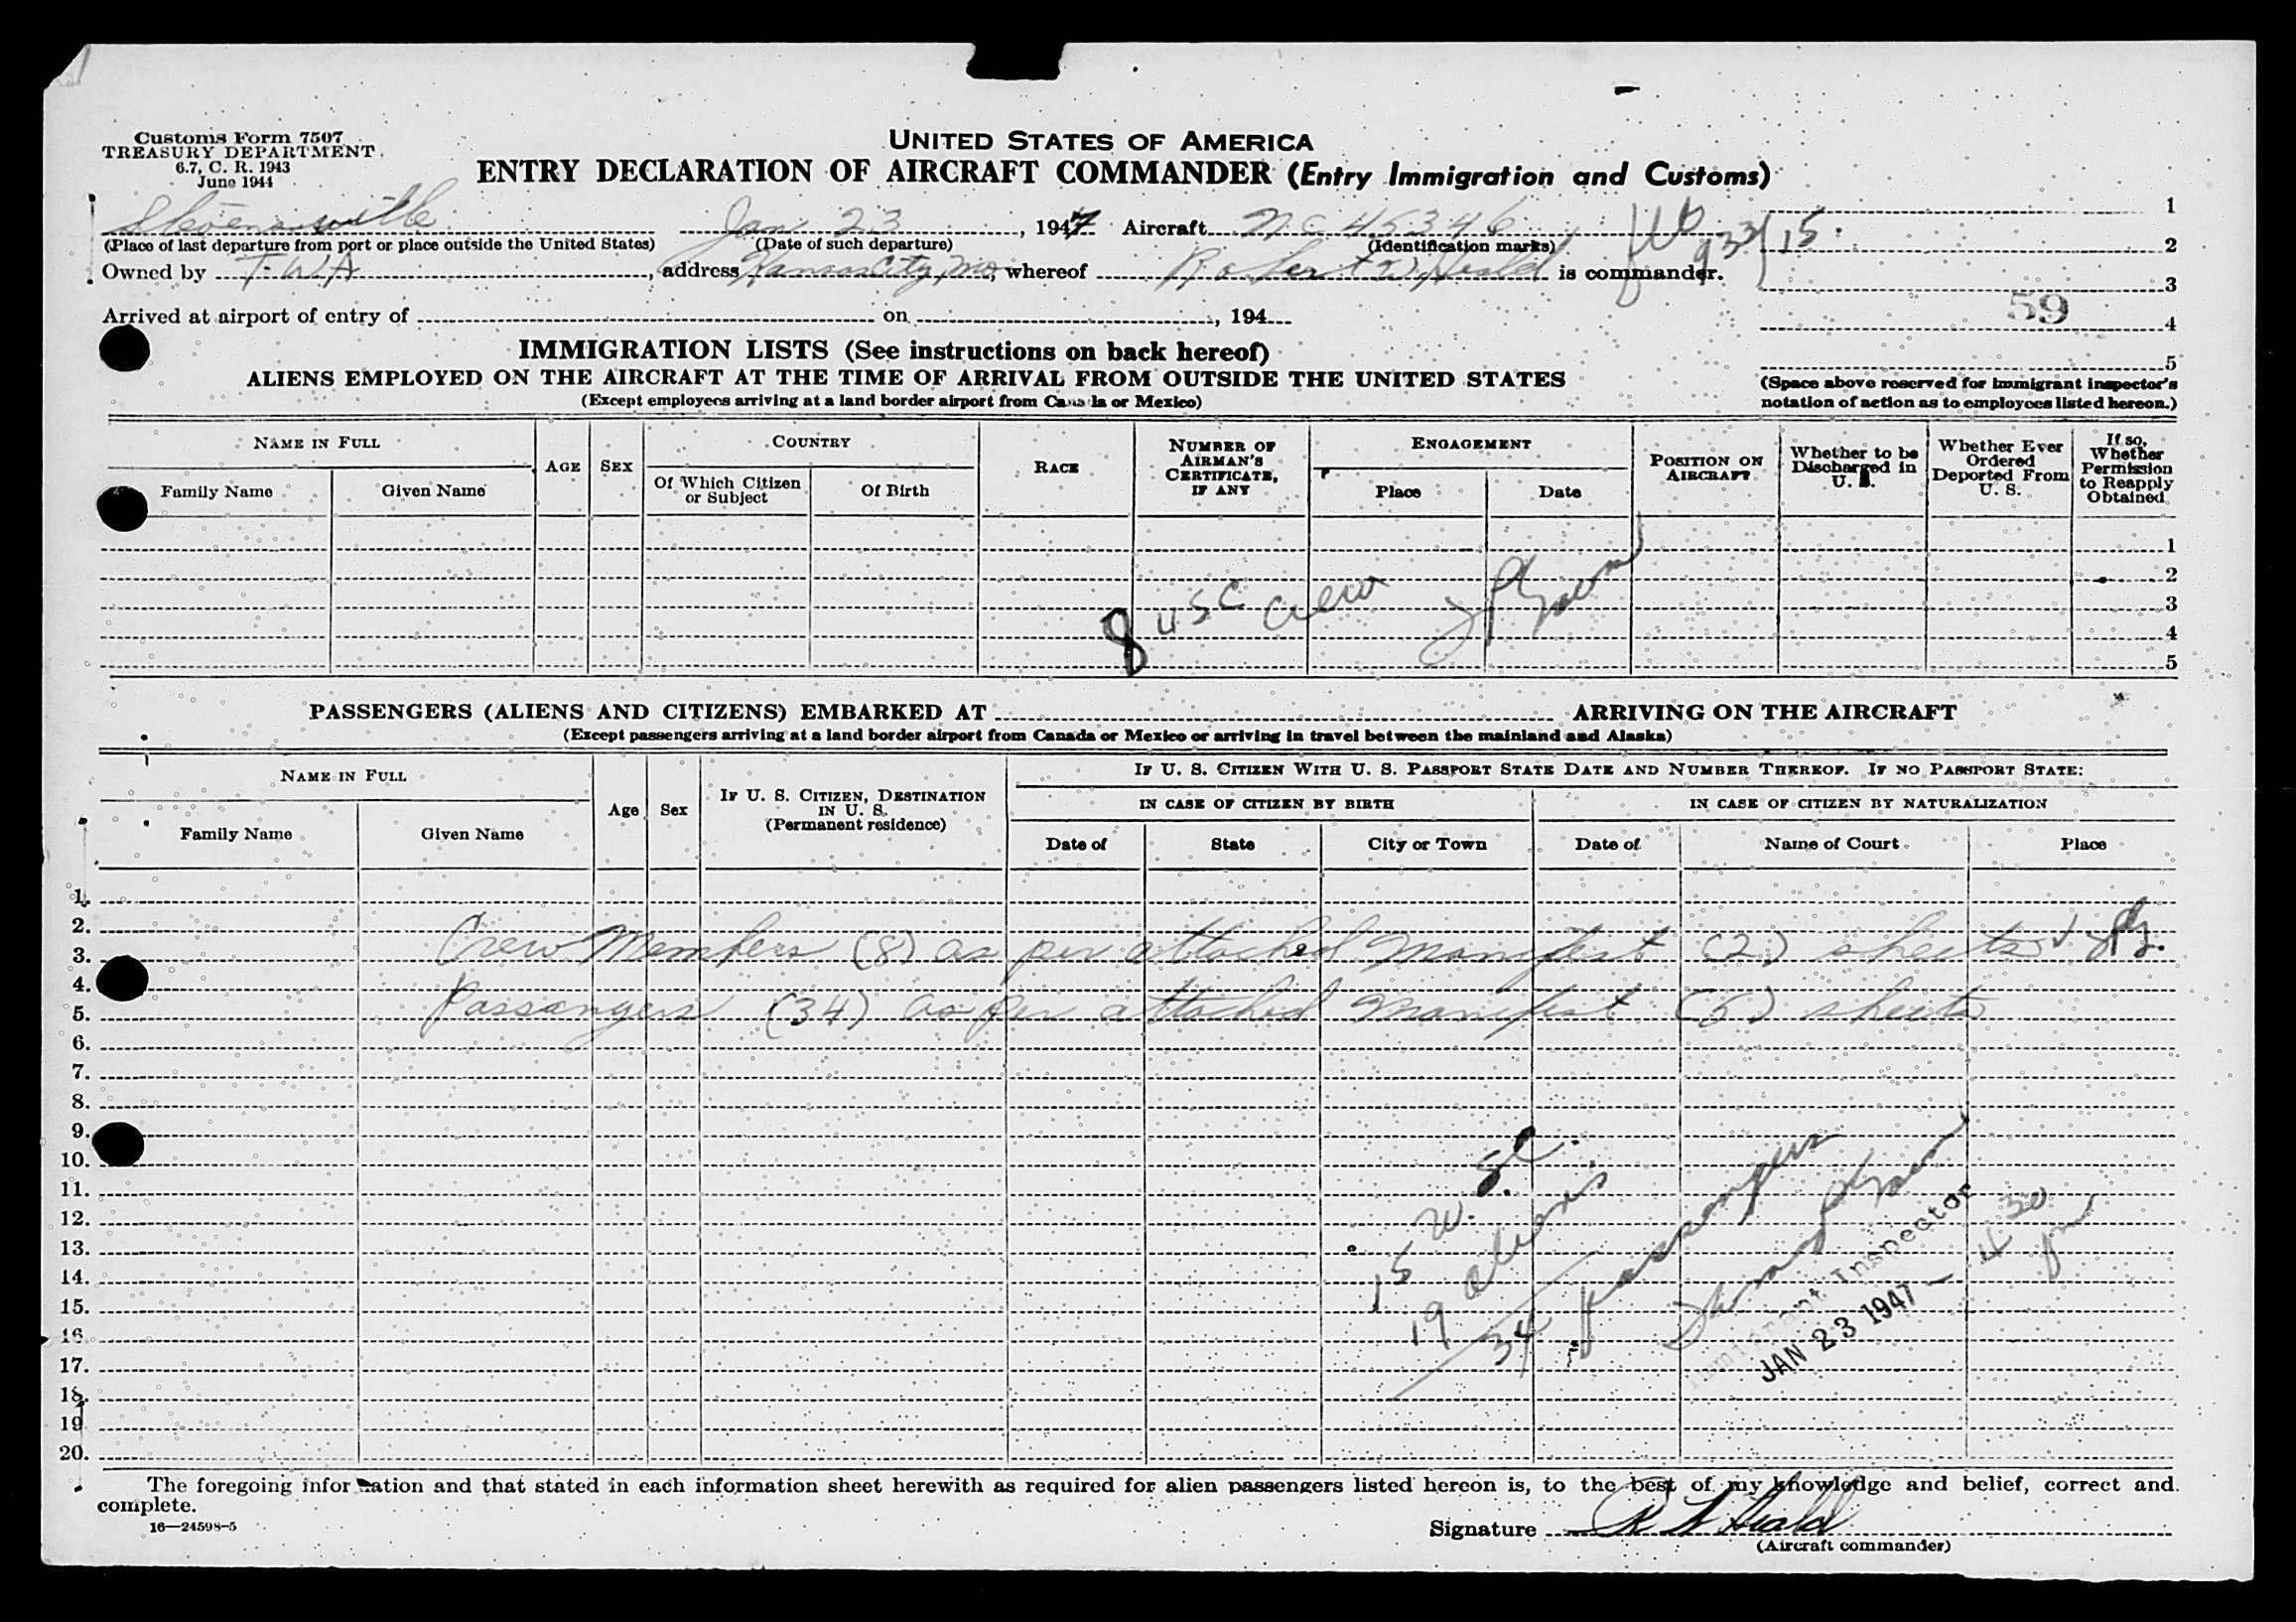 Customs Form 7507
TREASURY DEPARTMENT
6.7, C. R. 1943
June 1944
UNITED STATES OF AMERICA
ENTRY DECLARATION OF AIRCRAFT COMMANDER (Entry Immigration and Customs)
Jan 23, 1947 Aircraft NC 45346
(Place of last departure from port or place outside the United States) (Date of such departure) (Identification marks)
Owned by TWA, address Kansas City, Mo, whereof Robert W. Heald is commander.
Arrived at airport of entry of on , 194
933/15.
59
1
2
3
4
5
(Space above reserved for immigrant inspector's
notation of action as to employees listed hereon.)
IMMIGRATION LISTS (See instructions on back hereof)
ALIENS EMPLOYED ON THE AIRCRAFT AT THE TIME OF ARRIVAL FROM OUTSIDE THE UNITED STATES
(Except employees arriving at a land border airport from Canada or Mexico)
NAME IN FULL
Family Name
Given Name
AGE
SEX
COUNTRY
Of Which Citizen
or Subject
Of Birth
RACE
NUMBER OF
AIRMAN'S
CERTIFICATE,
IF ANY
ENGAGEMENT
Place
Date
POSITION ON
AIRCRAFT
Whether to be
Discharged in
U. S.
Whether Ever
Ordered
Deported From
U. S.
If so,
Whether
Permission
to Reapply
Obtained
1
2
3
4
5
8 USC Crew
PASSENGERS (ALIENS AND CITIZENS) EMBARKED AT ARRIVING ON THE AIRCRAFT
(Except passengers arriving at a land border airport from Canada or Mexico or arriving in travel between the mainland and Alaska)
NAME IN FULL
Family Name
Given Name
Age
Sex
IF U. S. CITIZEN, DESTINATION
IN U. S.
(Permanent residence)
IF U. S. CITIZEN WITH U. S. PASSPORT STATE DATE AND NUMBER THEREOF. IF NO PASSPORT STATE:
IN CASE OF CITIZEN BY BIRTH
Date of
State
City or Town
IN CASE OF CITIZEN BY NATURALIZATION
Date of
Name of Court
Place
1.
2.
3. Crew Members (8) as per attached Manifest (2) sheets
4.
5. Passengers (34) as per attached Manifest (5) sheets
6.
7.
8.
9.
10.
11.
12.
13.
14.
15.
16.
17.
18.
19
20.
15 U. S. C.
19 aliens
34 passengers
Immigrant Inspector
JAN 23 1947 — 4 30 pm
The foregoing information and that stated in each information sheet herewith as required for alien passengers listed hereon is, to the best of my knowledge and belief, correct and
complete.
16—24598-5
Signature R W Heald
(Aircraft commander)